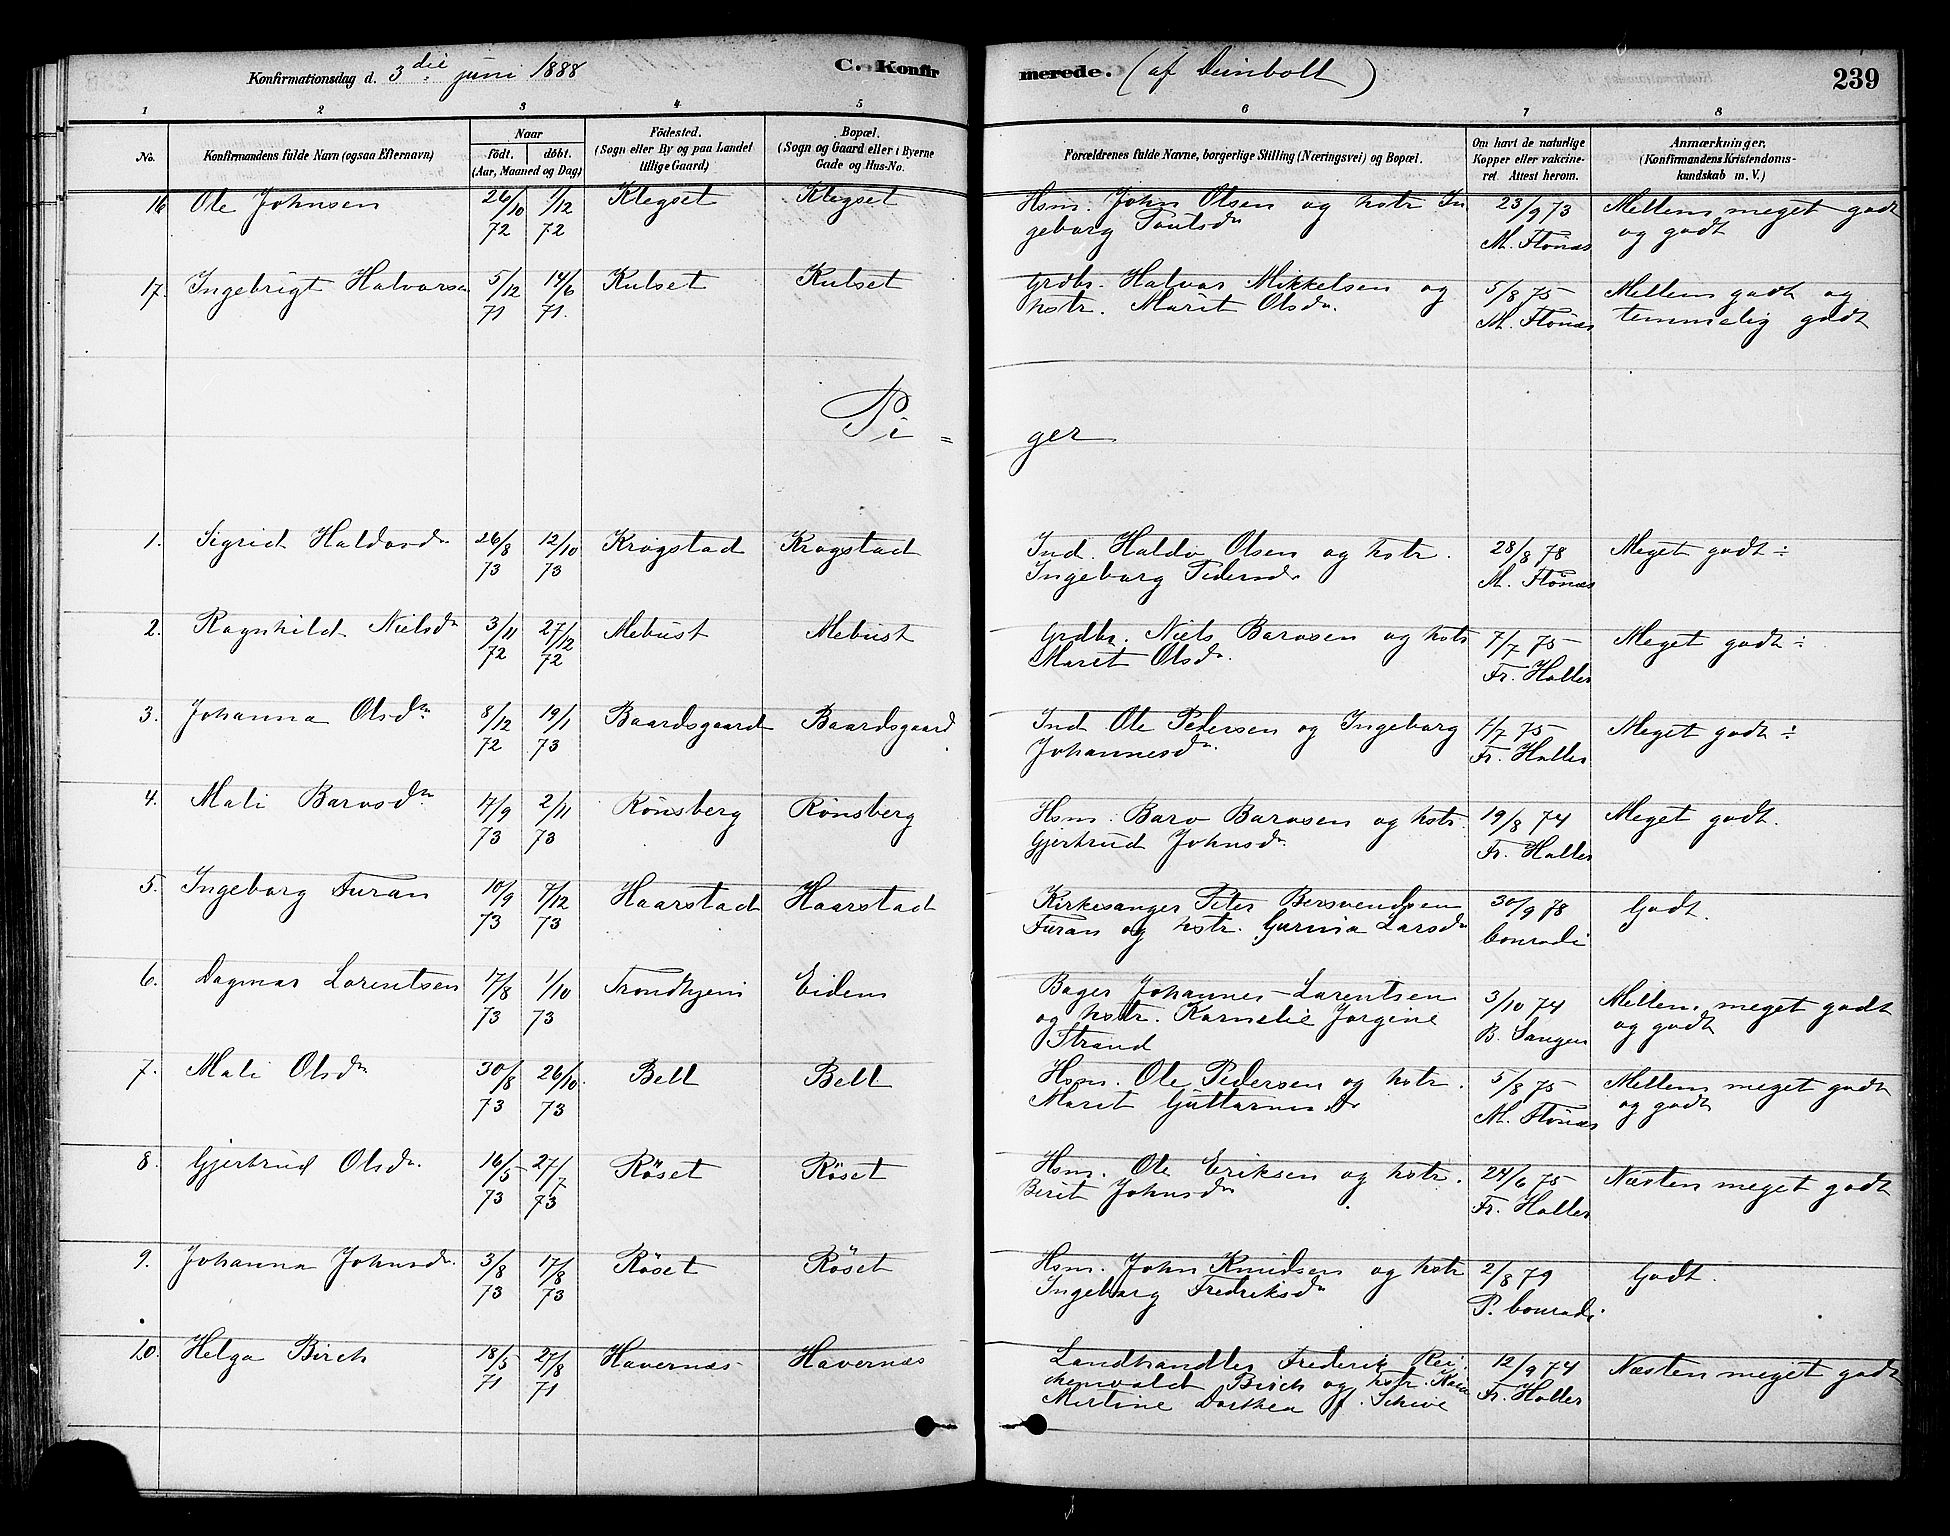 Konfirmationsdag d. 3die juni 1888
C. Konfir
merede. (af Deinboll)
239
1 2 3 4 5 6 7 8
No.
Konfirmandens fulde Navn (ogsaa Efternavn)
Naar
födt.
döbt.
(Aar, Maaned og Dag)
Födested.
(Sogn eller By og paa Landet
tillige Gaard)
Bopæl.
(Sogn og Gaard eller i Byerne
Gade og Hus-No.
Forældrenes fulde Navne, borgerlige Stilling (Næringsvei) og Bopæl.
Om havt de naturlige
Kopper eller vakcine-
ret. Attest herom.
Anmærkninger.
(Konfirmandens Kristendoms-
kundskab m. V.)
16 Ole Johnsen 26/10 72 1/12 72 Klegset Klegset Hsm. John Olsen og hstr In
geborg Poulsdr 23/9 73 M. Flönæs Mellem meget godt
og godt
17. Ingebrigt Halvorsen 5/12 71 14/6 71. Kulset Kulset Grdbr. Halvor Mikkelsen og
hstr. Marit Olsdr. 5/8 75 M. Flönæs Mellem godt og
temmelig godt
Pi=
ger
1. Sigrid Haldosdr 26/8 73 12/10 73 Krogstad Krogstad Ind. Haldo Olsen og hstr.
Ingeborg Pedersdr 28/8 78 M. Flönæs Meget godt ÷
2. Ragnhild Nielsdr 3/11 72 27/12 72 Mebust Mebust Grdbr. Niels Barosen og hstr
Marit Olsdr. 7/7 75 Fr. Holler Meget godt ÷
3. Johanna Olsdr 8/12 72 19/1 73 Baardsgaard Baardsgaard Ind Ole Pedersen og Ingeborg
Johannesdr. 1/7 75 Fr. Holler Meget godt ÷
4. Mali Barosdr 4/9 73 2/11 73 Rönsberg Rönsberg Hsm. Baro Barosen og hstr.
Gjertrud Johnsdr 19/8 74 Fr. Holler Meget godt.
5. Ingeborg Furan 10/9 73 7/12 73 Haarstad Haarstad Kirkesanger Peter Bersvendsen
Furan og hstr. Gurina Larsdr 30/9 78 Conradi Godt.
6. Dagmar Lorentsen 17/8 73 1/10 73 Trondhjem Eidem Bager Johannes Lorentsen
og hstr. Kornelie Jorgine
Strand 3/10 74 B. Sangen Mellem meget godt
og godt
7. Mali Olsdr 30/8 73 26/10. 73 Bell Bell Hsm. Ole Pedersen og hstr.
Marit Guttormsdr 5/8 75 M. Flönæs Mellem meget godt
og godt
8. Gjertrud Olsdr. 16/5 73 27/7 73 Röset Röset Hsm. Ole Eriksen og hstr.
Berit Johnsdr 24/6 75 Fr. Holler Næsten meget godt
9. Johanna Johnsdr. 3/8 73 17/8 73 Röset Röset Hsm. John Knudsen og hstr
Ingeborg Fredriksdr 2/8 79 P. Conradi. Godt.
10. Helga Birch 18/5 71 27/8 71 Havernæs Havernæs Landhandler Frederik Rei-
chenwaldt Birch og hstr.
Martine Dorthea f. Schive 12/9 74 Fr. Holler Næsten meget godt